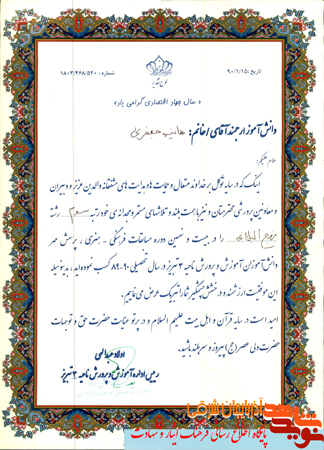 تاریخ: ۹۰/۲/۱۵
شماره: ۱۸۰۳/۲۶۸/۵۲۰
« سال جهاد اقتصادی گرامی باد »
دانش آموز ارجمند آقای / خانم:
سلام علیکم
اینک که در سایه توکل بر خداوند متعال و حمایت ها و هدایت های مشفقانه والدین عزیز و دبیران
و معاونین پرورشی محترمتان و نیز با همت بلند و تلاشهای مستمر و مجدانه ی خود رتبه سوم رشته
را در بیست و نهمین دوره مسابقات فرهنگی - هنری ، پرسش مهر
دانش آموزان آموزش و پرورش ناحیه ۳ تبریز در سال تحصیلی ۹۰-۸۹ کسب نموده اید، بدینوسیله
این موفقیت ارزشمند و درخشش چشمگیر شما را تبریک عرض می نماییم.
امید است در سایه قرآن و اهل بیت علیهم السلام و در پرتو عنایات حضرت حق و توجهات
حضرت ولی عصر (عج) پیروز و سربلند باشید.
اولاد عبدالهی
رییس اداره آموزش و پرورش ناحیه ۳ تبریز
نوید شاهد
آذربایجان شرقی
پایگاه اطلاع رسانی فرهنگ ایثار و شهادت